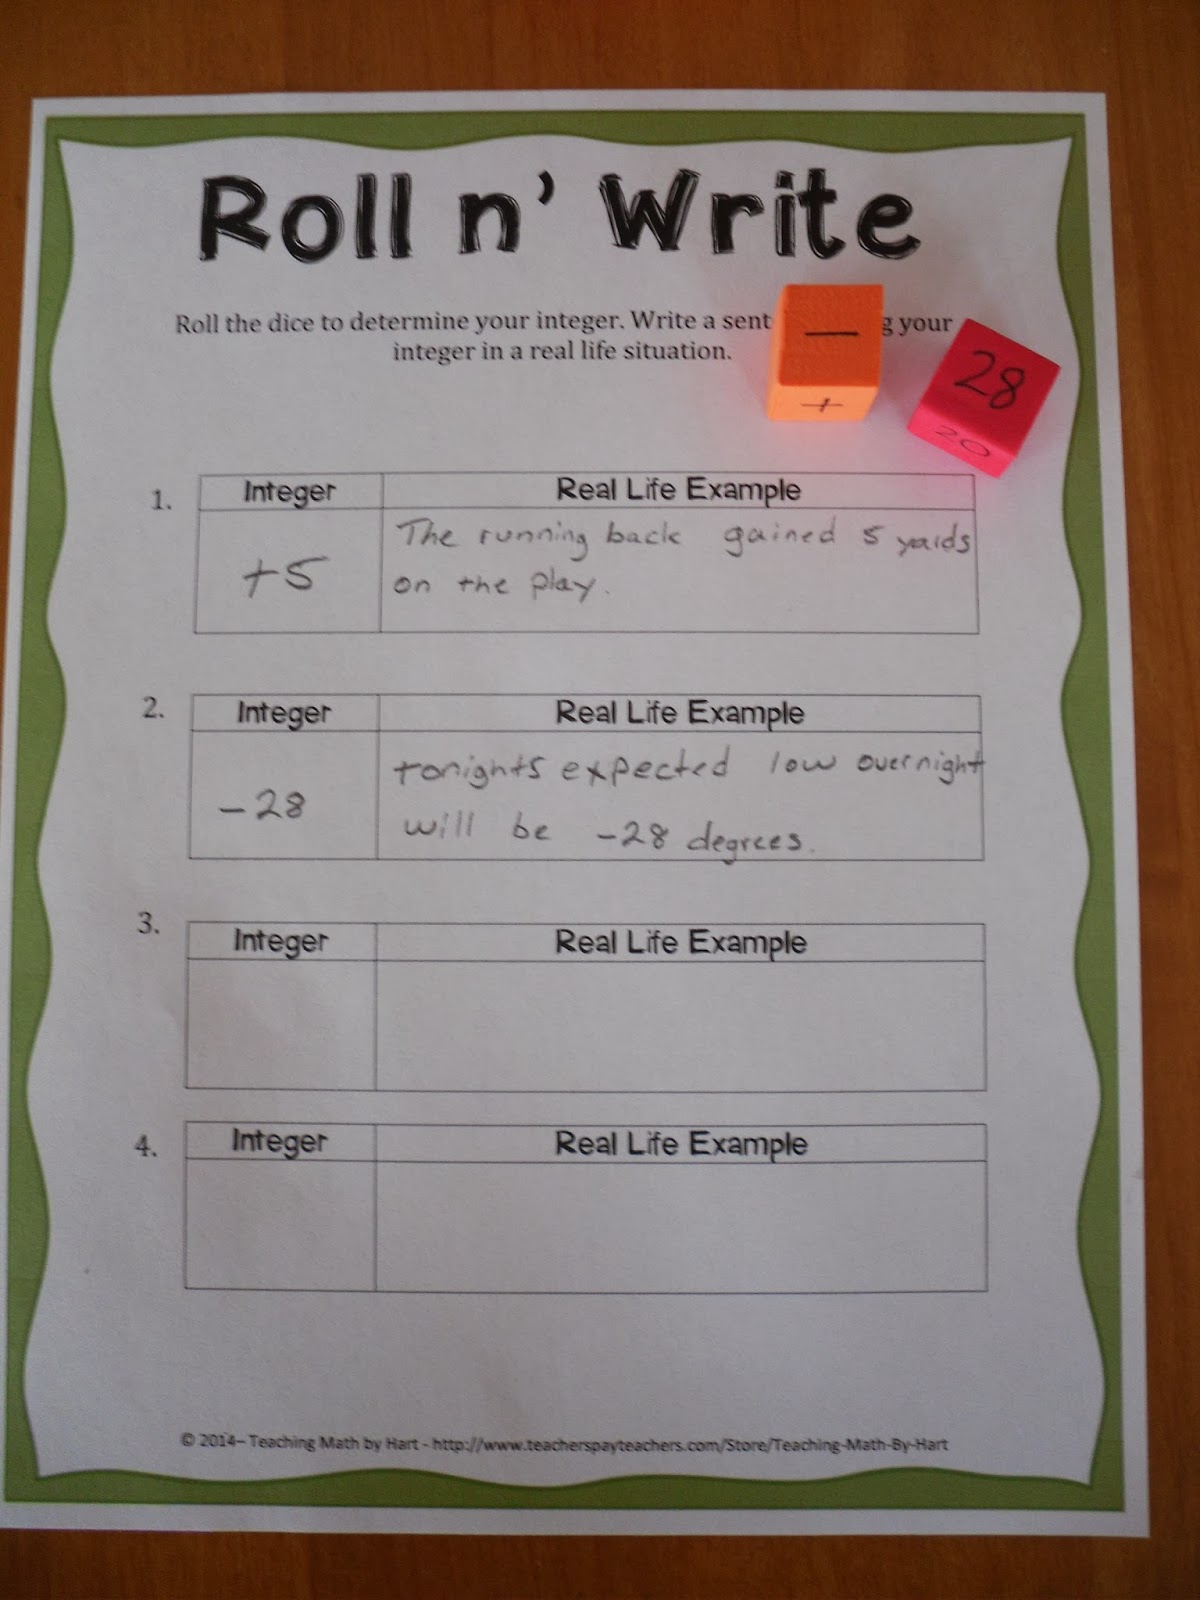 Roll n' Write
Roll the dice to determine your integer. Write a sent g your
integer in a real life situation.
—
+
28
20
1.
Integer Real Life Example
+5
The running back gained 5 yards
on the play.
2.
Integer Real Life Example
-28
tonights expected low overnight
will be -28 degrees.
3.
Integer Real Life Example
4.
Integer Real Life Example
© 2014– Teaching Math by Hart - http://www.teacherspayteachers.com/Store/Teaching-Math-By-Hart